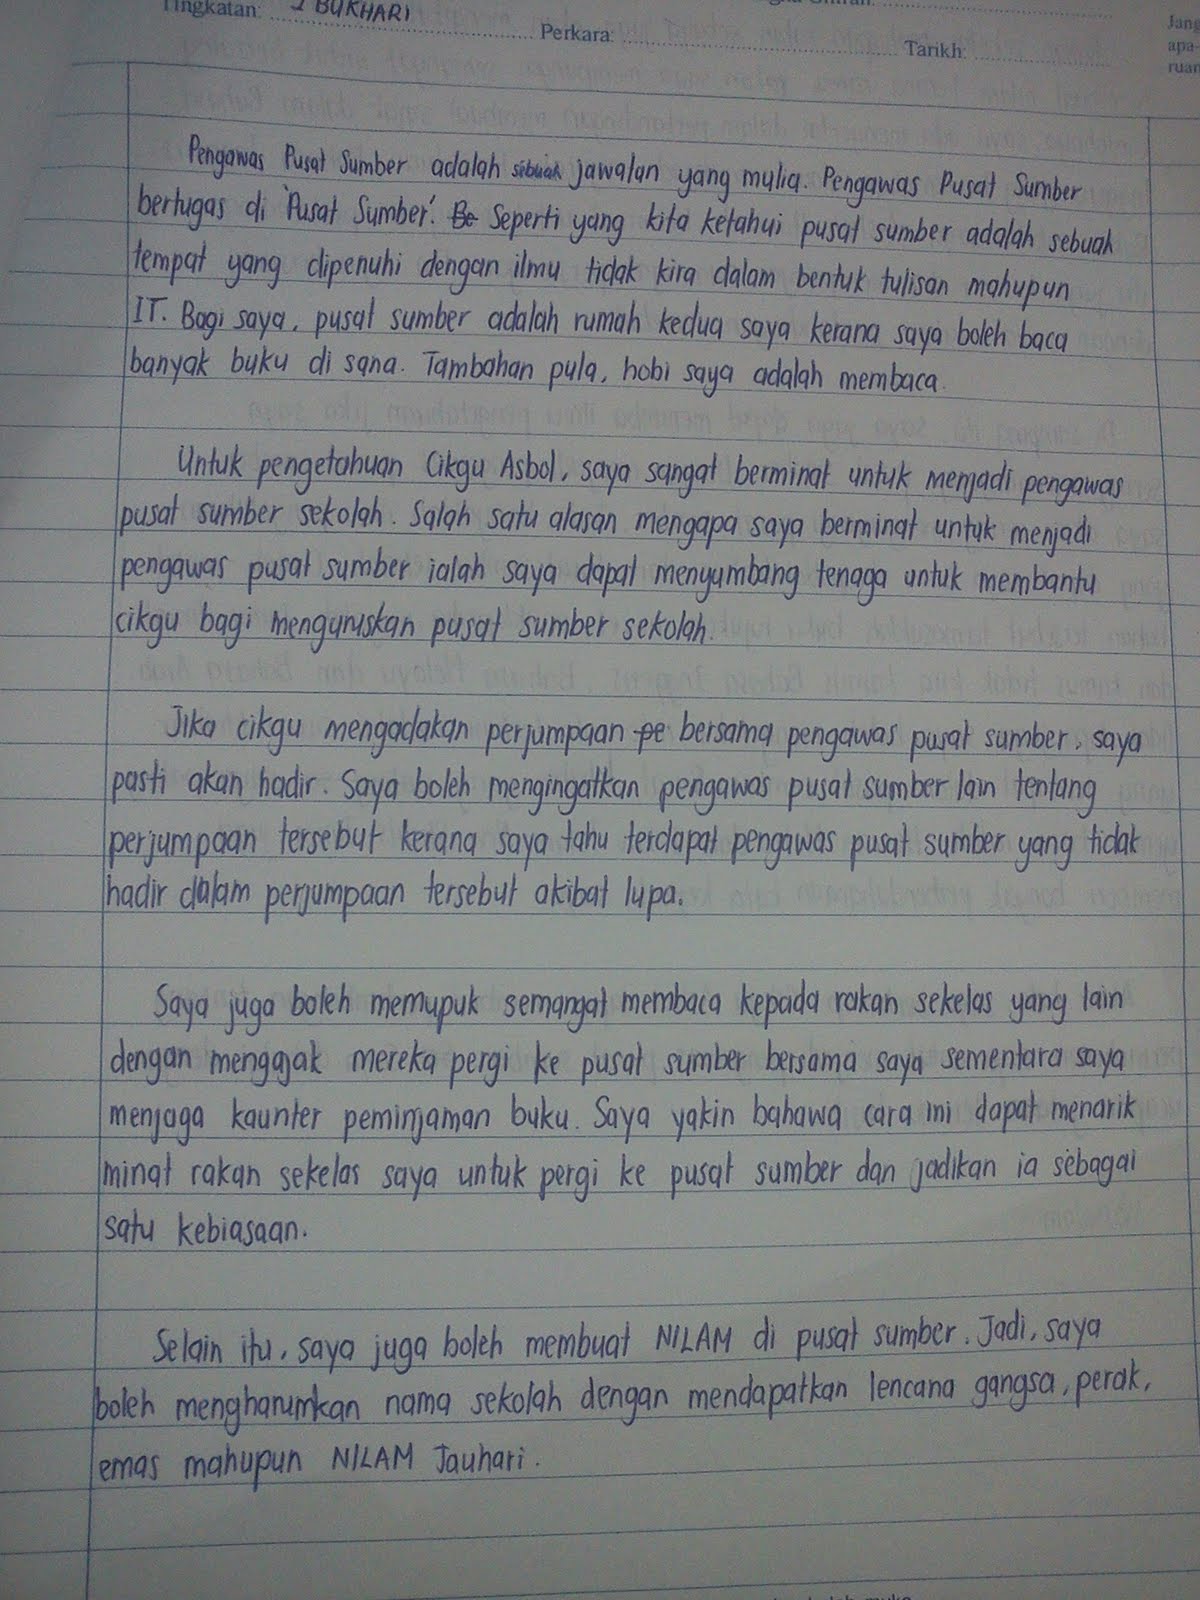 Tingkatan: BUKHARI Perkara: Tarikh:
Jang
apa-
ruan
Pengawas Pusat Sumber adalah sebuah jawatan yang mulia. Pengawas Pusat Sumber
bertugas di 'Pusat Sumber'. Be Seperti yang kita ketahui pusat sumber adalah sebuah
tempat yang dipenuhi dengan ilmu tidak kira dalam bentuk tulisan mahupun
IT. Bagi saya, pusat sumber adalah rumah kedua saya kerana saya boleh baca
banyak buku di sana. Tambahan pula, hobi saya adalah membaca.
Untuk pengetahuan Cikgu Asbol, saya sangat berminat untuk menjadi pengawas
pusat sumber sekolah. Salah satu alasan mengapa saya berminat untuk menjadi
pengawas pusat sumber ialah saya dapat menyumbang tenaga untuk membantu
cikgu bagi menguruskan pusat sumber sekolah.
Jika cikgu mengadakan perjumpaan pe bersama pengawas pusat sumber, saya
pasti akan hadir. Saya boleh mengingatkan pengawas pusat sumber lain tentang
perjumpaan tersebut kerana saya tahu terdapat pengawas pusat sumber yang tidak
hadir dalam perjumpaan tersebut akibat lupa.
Saya juga boleh memupuk semangat membaca kepada rakan sekelas yang lain
dengan mengajak mereka pergi ke pusat sumber bersama saya sementara saya
menjaga kaunter peminjaman buku. Saya yakin bahawa cara ini dapat menarik
minat rakan sekelas saya untuk pergi ke pusat sumber dan jadikan ia sebagai
satu kebiasaan.
Selain itu, saya juga boleh membuat NILAM di pusat sumber. Jadi, saya
boleh mengharumkan nama sekolah dengan mendapatkan lencana gangsa, perak,
emas mahupun NILAM Jauhari.